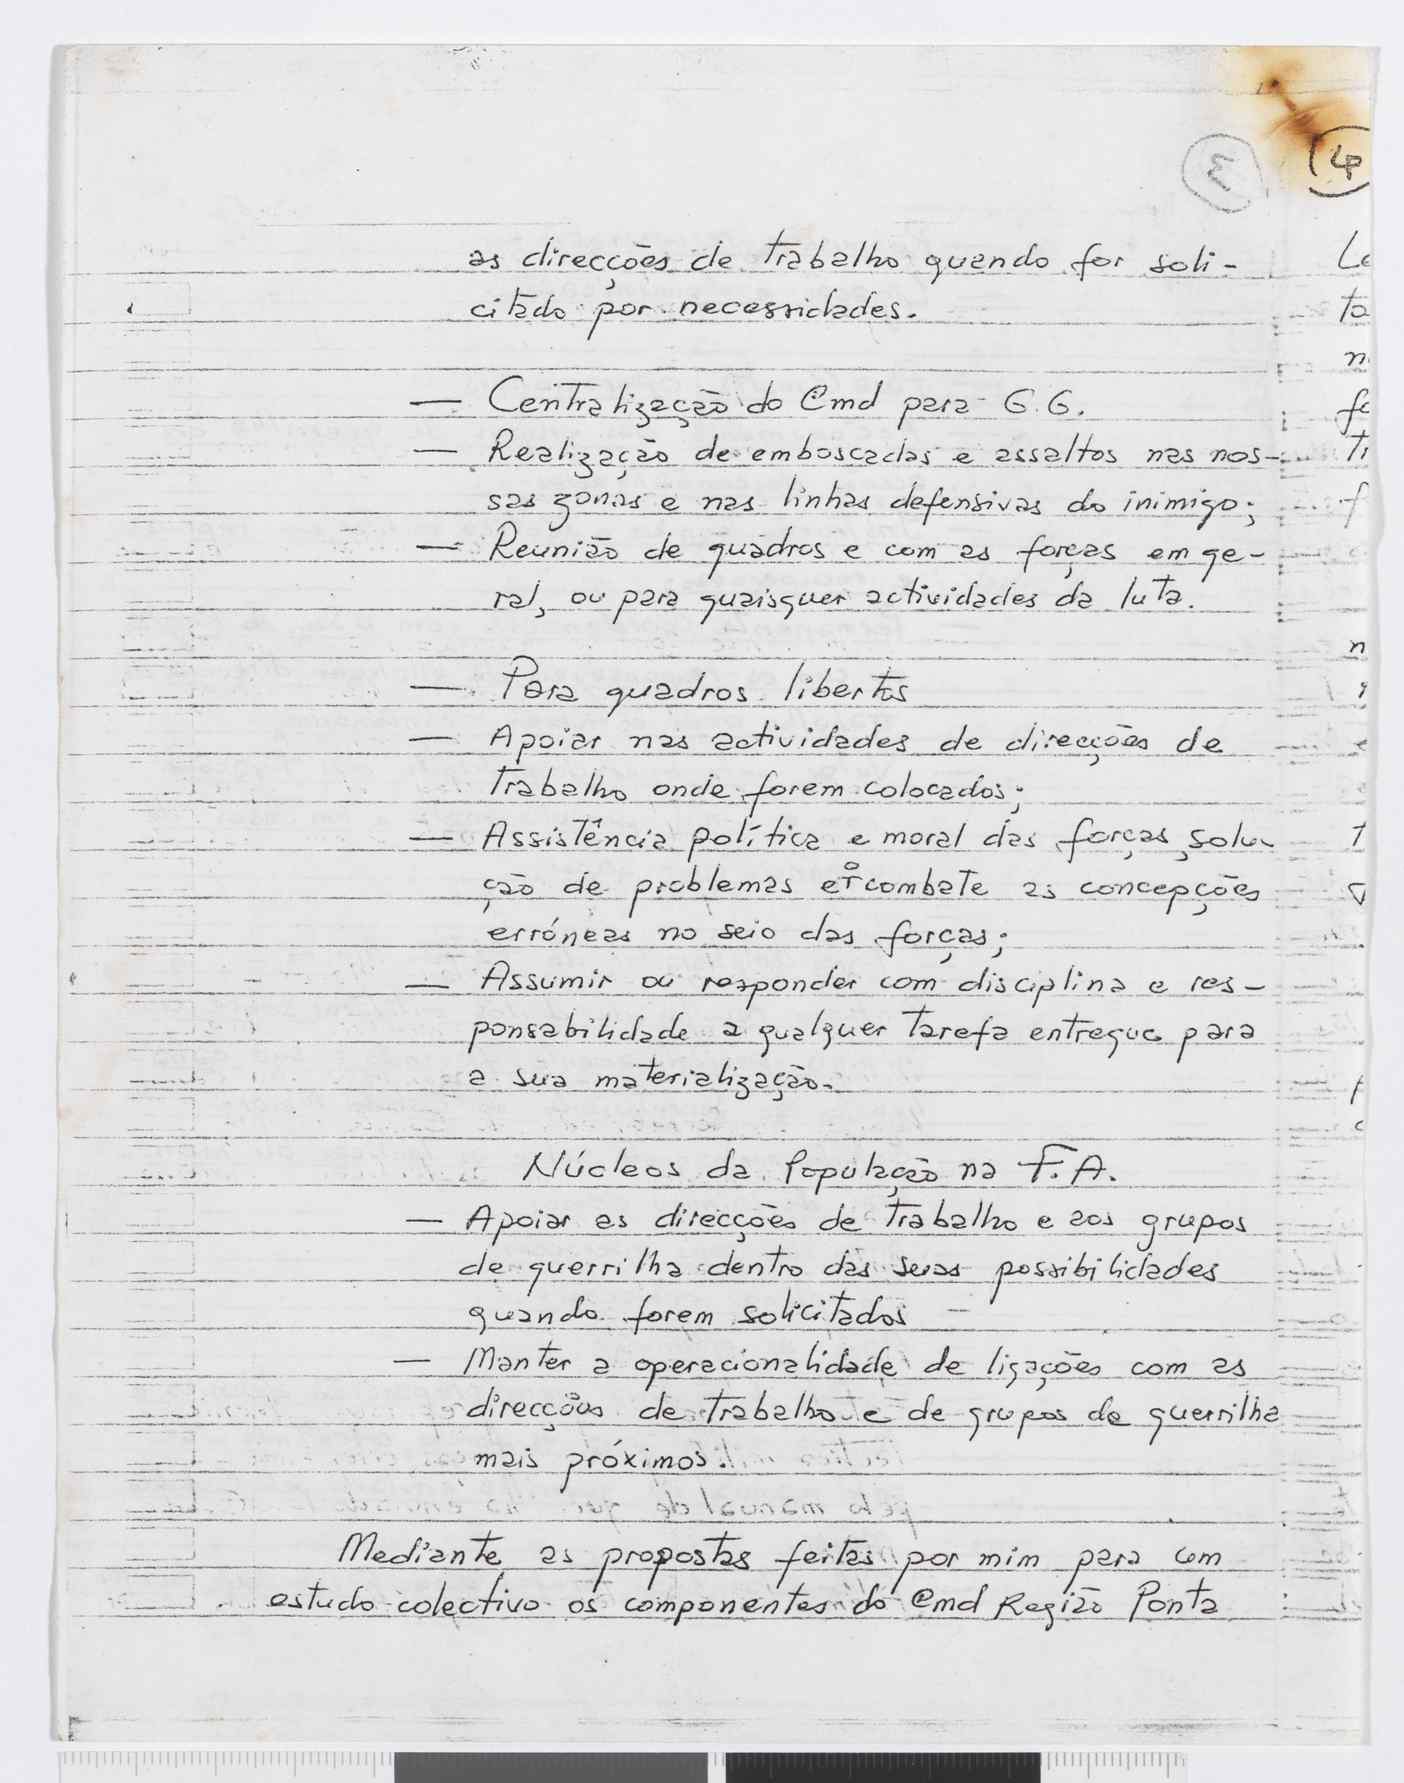 4
as direcções de trabalho quando for soli-
citado por necessidades.
— Centralização do Cmd para G.G.
— Realização de emboscadas e assaltos nas nos-
sas zonas e nas linhas defensivas do inimigo;
— Reunião de quadros e com as forças em ge-
ral, ou para quaisquer actividades da luta.
— Para quadros libertos
— Apoiar nas actividades de direcções de
trabalho onde forem colocados;
— Assistência política e moral das forças, solu-
ção de problemas e combate as concepções
erróneas no seio das forças;
— Assumir ou responder com disciplina e res-
ponsabilidade a qualquer tarefa entregue para
a sua materialização.
Núcleos da População na F.A.
— Apoiar as direcções de trabalho e aos grupos
de guerrilha dentro das suas possibilidades
quando forem solicitados
— Manter a operacionalidade de ligações com as
direcções de trabalho e de grupos de guerrilha
mais próximos.
Mediante as propostas feitas por mim para um
estudo colectivo os componentes do Cmd Região Ponta